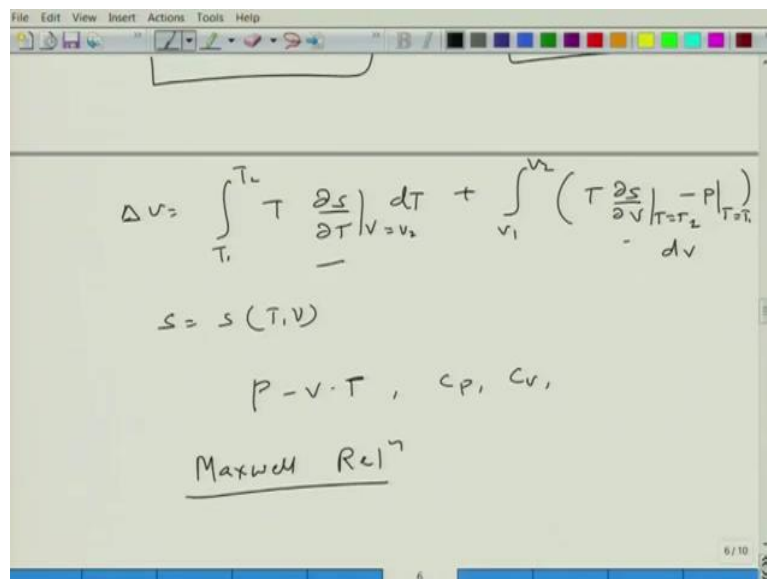 File Edit View Insert Actions Tools Help
B I
Δv = ∫_{T₁}^{T₂} T ∂s/∂T|_{V=V₂} dT + ∫_{V₁}^{V₂} (T ∂s/∂V|_{T=T₂} - P|_{T=T₁}) dv
s = s (T, V)
P - V - T , Cp, Cv,
Maxwell Relⁿ
6/10
6